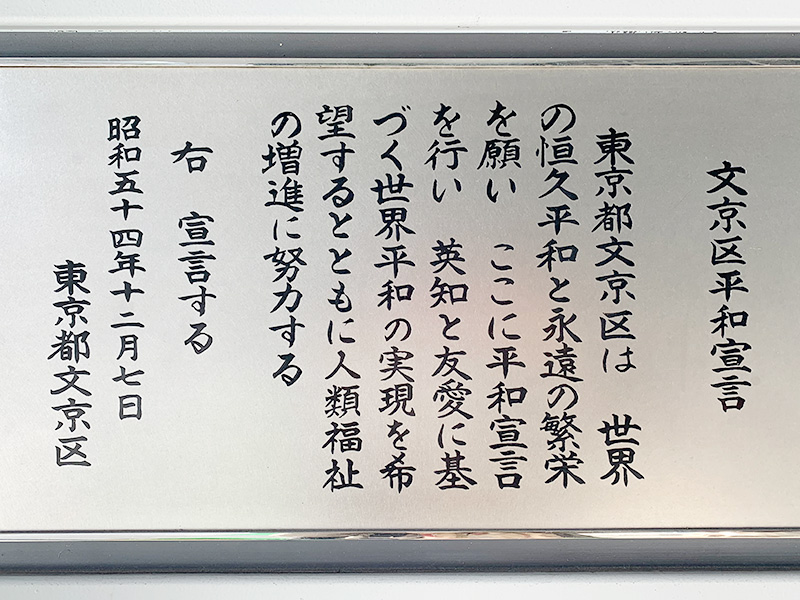 文京区平和宣言
東京都文京区は　世界
の恒久平和と永遠の繁栄
を願い　ここに平和宣言
を行い　英知と友愛に基
づく世界平和の実現を希
望するとともに人類福祉
の増進に努力する
右　宣言する
昭和五十四年十二月七日
東京都文京区